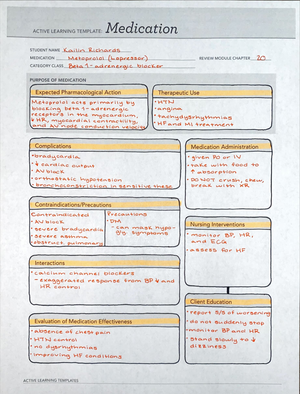 ACTIVE LEARNING TEMPLATE: Medication
STUDENT NAME Kailin Richards
MEDICATION Metoprolol (Lopressor) REVIEW MODULE CHAPTER 20
CATEGORY CLASS Beta 1-adrenergic blocker
PURPOSE OF MEDICATION
Expected Pharmacological Action
Metoprolol acts primarily by
blocking beta 1-adrenergic
receptors in the myocardium,
↓ HR, myocardial contractility,
and AV node conduction velocity
Therapeutic Use
• HTN
• angina
• tachydysrhythmias
• HF and MI treatment
Complications
• bradycardia
• ↓ cardiac output
• AV block
• orthostatic hypotension
• bronchoconstriction in sensitive
Medication Administration
• given PO or IV
• take with food to
↑ absorption
• DO NOT crush, chew,
break with XR
Contraindications/Precautions
Contraindicated
• AV block
• severe bradycardia
• severe asthma
• obstruct. pulmonary
Precautions
• DM
• can mask
symptoms
Nursing Interventions
• monitor BP, HR,
and ECG
• assess for HF
Interactions
• calcium channel blockers
- exaggerated response from BP & and
HR control
Client Education
• report s/s of worsening
• do not suddenly stop
• monitor BP and HR
• stand slowly to ↓
dizziness
Evaluation of Medication Effectiveness
• absence of chest pain
• HTN control
• no dysrhythmias
• improving HF conditions
ACTIVE LEARNING TEMPLATES